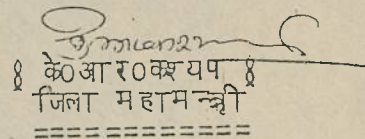 के0आर0कश्यप
जिला महामन्त्री